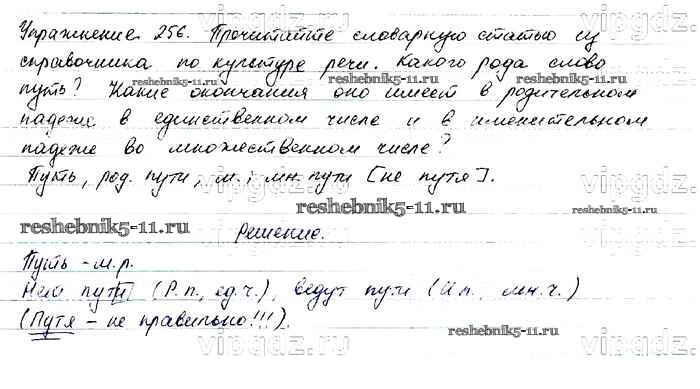 Упражнение 256. Прочитайте словарную статью из
справочника по культуре речи. Какого рода слово
путь? Какие окончания оно имеет в родительном
падеже в единственном числе и в именительном
падеже во множественном числе?
Путь, род. пути, м.; мн. пути [не путя].
Решение.
Путь - м.р.
Нет пути (Р.п., ед.ч.), ведут пути (И.п., мн.ч.)
(Путя - не правильно!!!).
vipgdz.ru
reshebnik5-11.ru
reshebnik5-11.ru
reshebnik5-11.ru
reshebnik5-11.ru
reshebnik5-11.ru
reshebnik5-11.ru
reshebnik5-11.ru
vipgdz.ru
vipgdz.ru
vipgdz.ru